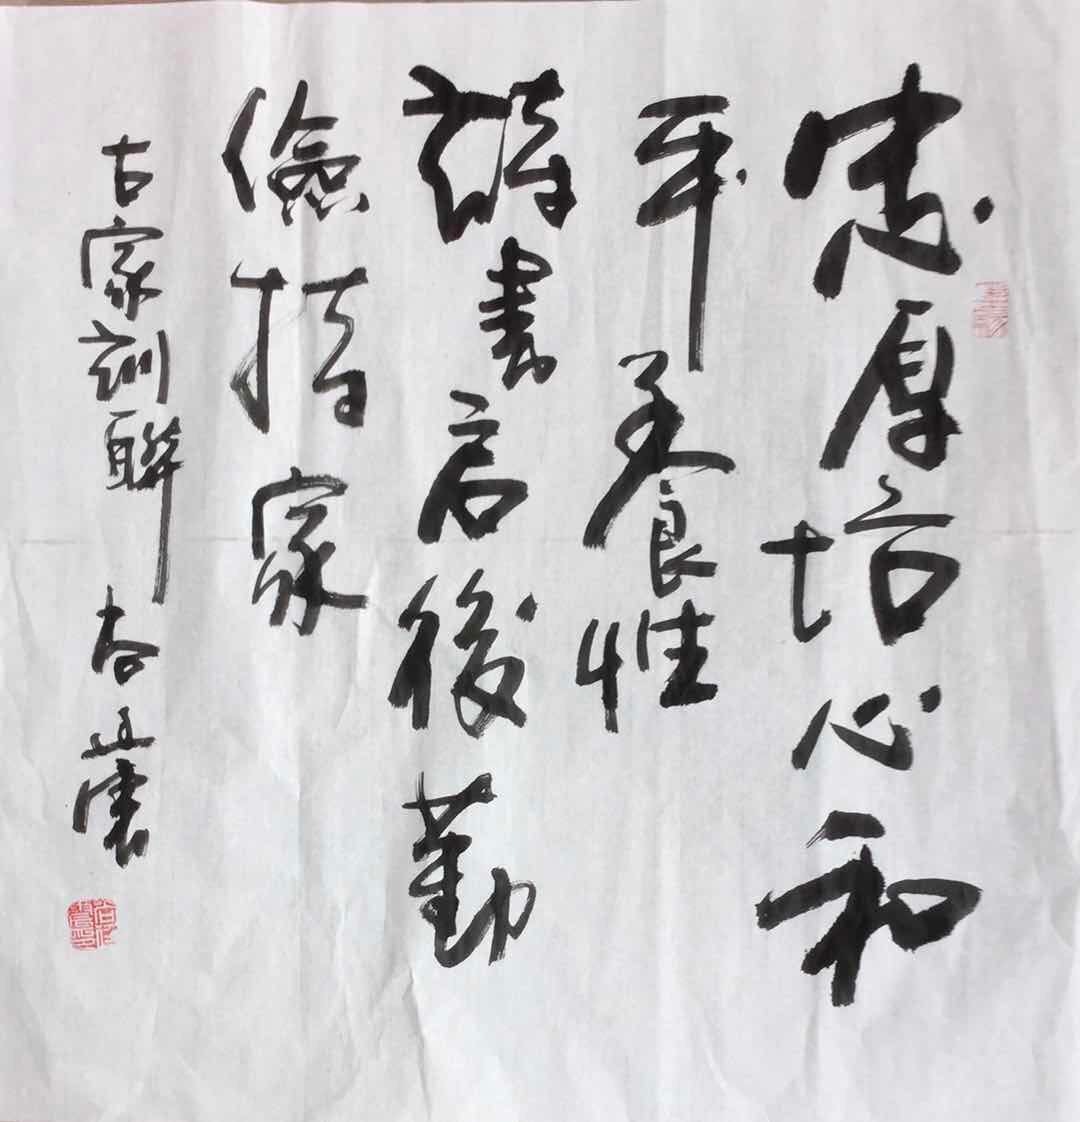 忠厚培心和
平養性
詩書启後勤
儉持家
古家訓聯